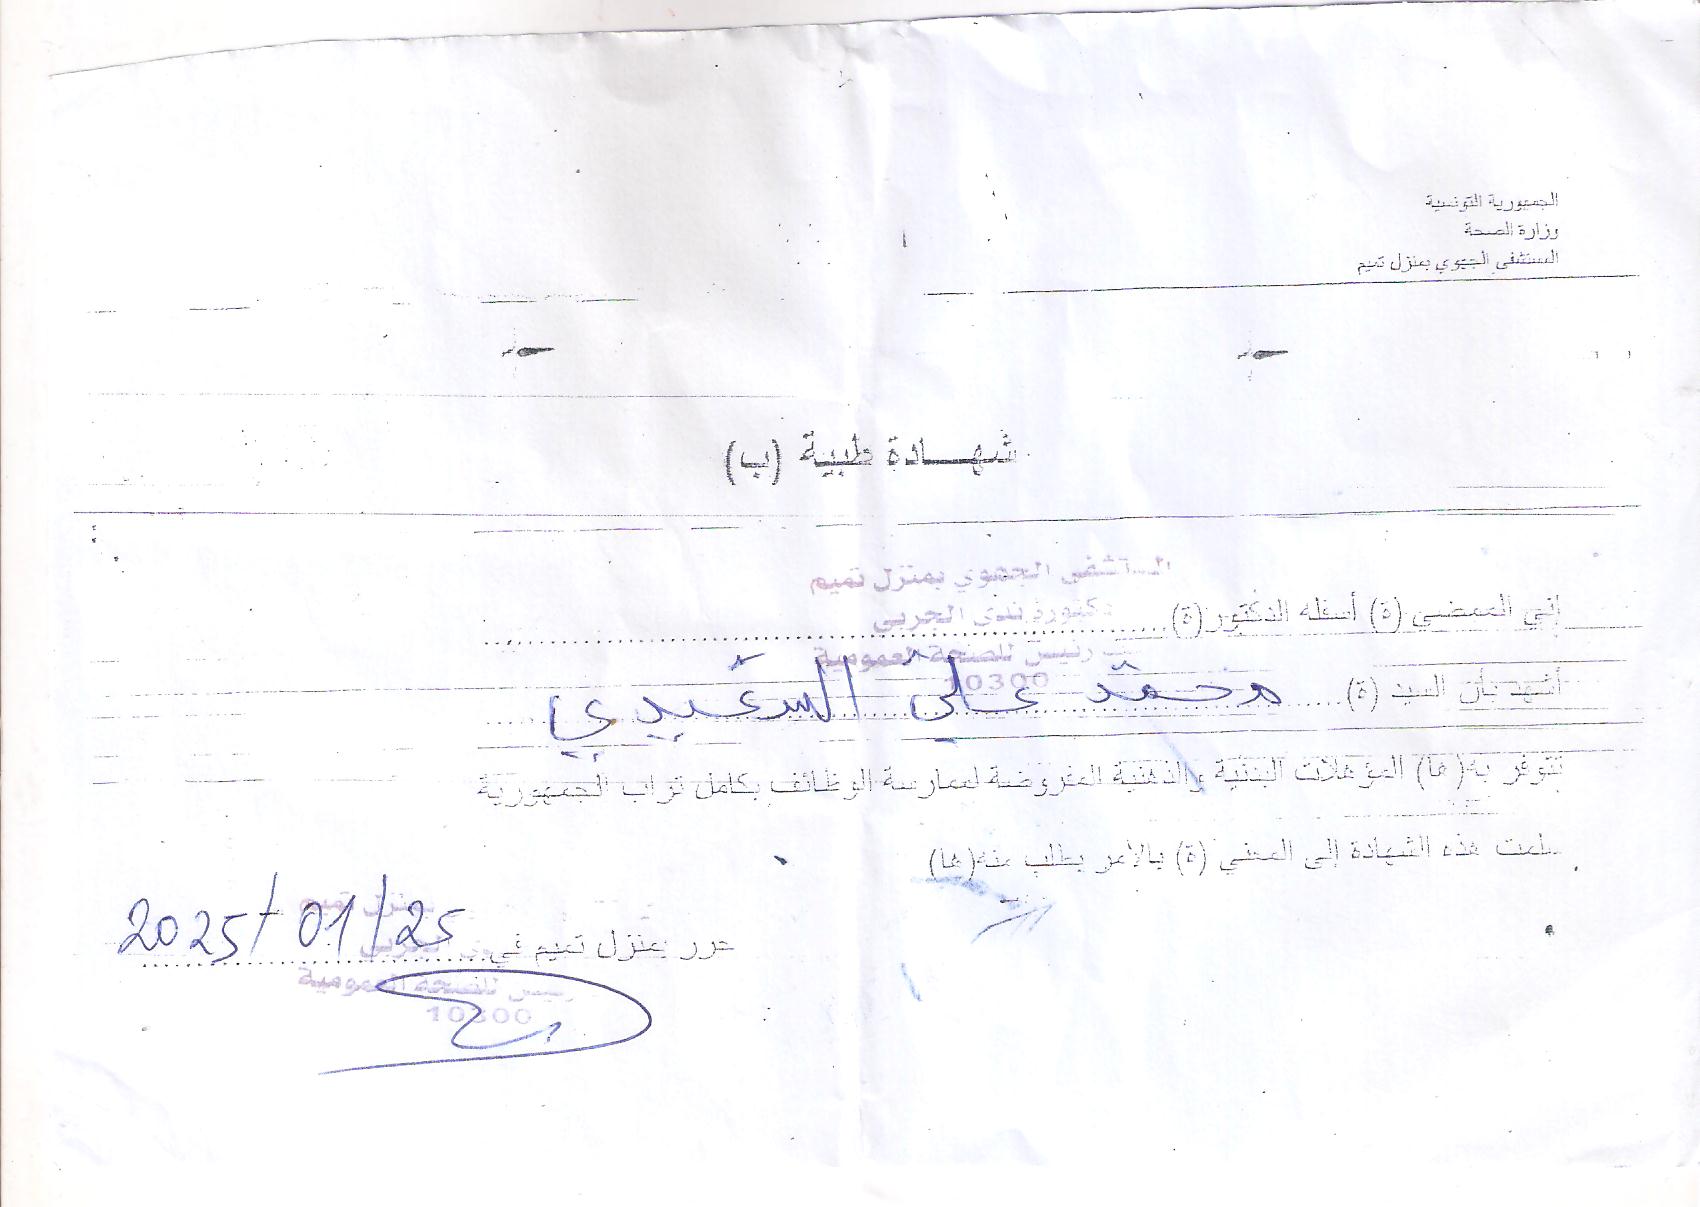 الجمهورية التونسية
وزارة الصحة
المستشفى الجهوي بمنزل تميم
شهـــادة طبية (ب)
المستشفى الجهوي بمنزل تميم
دكتورة ندى الجربي
إني الممضي (ة) أسفله الدكتور (ة)
رئيس للصحة العمومية
10300
أشهد بأن السيد (ة) محمد علي السعيدي
تتوفر به(ها) المؤهلات البدنية والذهنية المفروضة لممارسة الوظائف بكامل تراب الجمهورية
سلمت هذه الشهادة إلى المعني (ة) بالأمر بطلب منه(ها)
بمنزل تميم
حرر بمنزل تميم في 2025/01/25
رئيس للصحة العمومية
10300